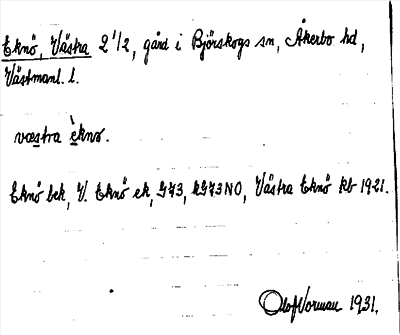 Eknö, Västra 2 1/2, gård i Björskogs sn, Åkerbo hd,
Västmanl. l.
væstra èknø.
Eknö bek, V. Eknö ek, G73, kG73NO, Västra Eknö kb 1921.
Olof Norman 1931.